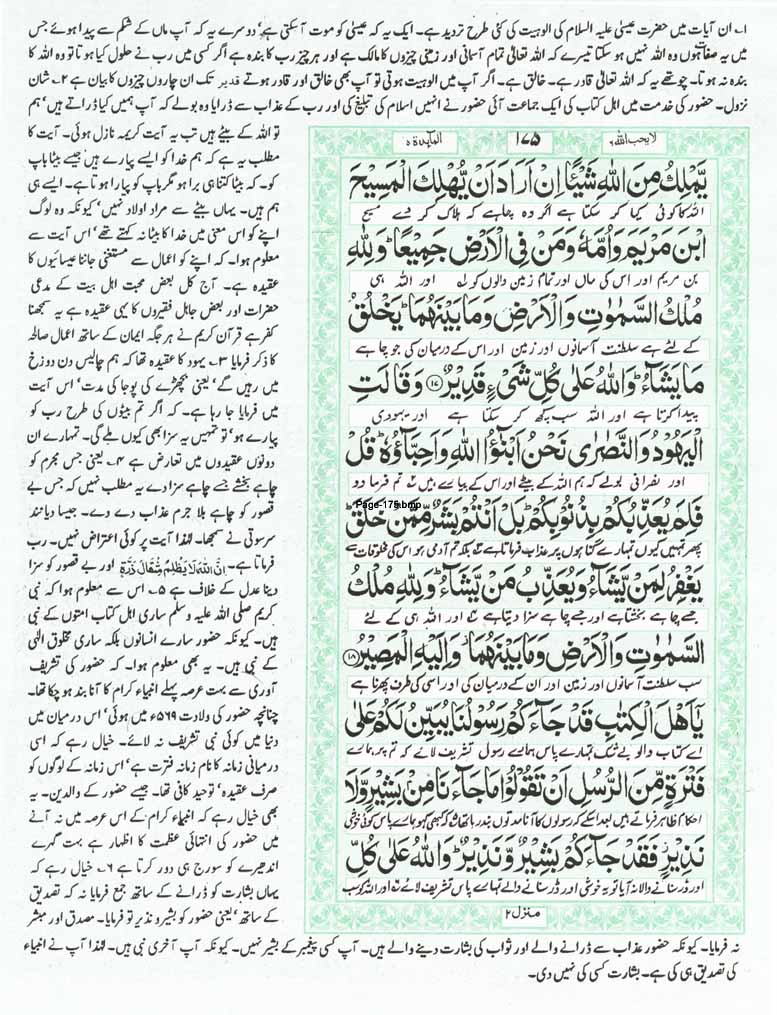 ۱۔ ان آیات میں حضرت عیسیٰ علیہ السلام کی الوہیت کی کئی طرح تردید ہے۔ ایک یہ کہ عیسیٰ کو موت آ سکتی ہے، دوسرے یہ کہ آپ ماں کے شکم سے پیدا ہوئے جس
میں یہ صفات ہوں وہ اللہ نہیں ہو سکتا تیسرے کہ اللہ تعالیٰ تمام آسمانی اور زمینی چیزوں کا مالک ہے اور ہر چیز رب کا بندہ ہے اگر کسی میں رب نے حلول کیا ہوتا تو وہ اللہ کا
بندہ نہ ہوتا۔ چوتھے یہ کہ اللہ تعالیٰ قادر ہے۔ خالق ہے۔ اگر آپ میں الوہیت ہوتی تو آپ بھی خالق اور قادر ہوتے قدیر تک ان چاروں چیزوں کا بیان ہے ۲۔ شان
نزول۔ حضور کی خدمت میں اہل کتاب کی ایک جماعت آئی حضور نے انہیں اسلام کی تبلیغ کی اور رب کے عذاب سے ڈرایا وہ بولے کہ آپ ہمیں کیا ڈراتے ہیں، ہم
تو اللہ کے بیٹے ہیں تب یہ آیت کریمہ نازل ہوئی۔ آیت کا
مطلب یہ ہے کہ ہم خدا کو ایسے پیارے ہیں جیسے بیٹا باپ
کو۔ کہ بیٹا کتنا ہی برا ہو مگر باپ کو پیارا ہوتا ہے۔ ایسے ہی
ہم ہیں۔ یہاں بیٹے سے مراد اولاد نہیں، کیونکہ وہ لوگ
اپنے کو اس معنی میں خدا کا بیٹا نہ کہتے تھے، اس آیت سے
معلوم ہوا۔ کہ اپنے کو اعمال سے مستغنی جاننا عیسائیوں کا
عقیدہ ہے۔ آج کل بعض محبت اہل بیت کے مدعی
حضرات اور بعض جاہل فقیروں کا یہی عقیدہ ہے یہ سمجھنا
کفر ہے قرآن کریم نے ہر جگہ ایمان کے ساتھ اعمال صالحہ
کا ذکر فرمایا ۳۔ یہود کا عقیدہ تھا کہ ہم چالیس دن دوزخ
میں رہیں گے، یعنی بچھڑے کی پوجا کی مدت، اس آیت
میں فرمایا جا رہا ہے۔ کہ اگر تم بیٹوں کی طرح رب کو
پیارے ہو، تو تمہیں یہ سزا بھی کیوں ملے گی۔ تمہارے ان
دونوں عقیدوں میں تعارض ہے ۴۔ یعنی جس مجرم کو
چاہے بخشے جسے چاہے سزا دے یہ مطلب نہیں کہ جس بے
قصور کو چاہے بلا جرم عذاب دے دے۔ جیسا دیانند
سرسوتی نے سمجھا۔ لہٰذا آیت پر کوئی اعتراض نہیں۔ رب
فرماتا ہے۔ اِنَّ اللّٰهَ لَا يَظْلِمُ مِثْقَالَ ذَرَّةٍ اور بے قصور کو سزا
دینا عدل کے خلاف ہے ۵۔ اس سے معلوم ہوا کہ نبی
کریم صلی اللہ علیہ وسلم ساری اہل کتاب امتوں کے نبی
ہیں۔ کیونکہ حضور سارے انسانوں بلکہ ساری مخلوق الٰہی
کے نبی ہیں۔ یہ بھی معلوم ہوا۔ کہ حضور کی تشریف
آوری سے بہت عرصہ پہلے انبیاء کرام کا آنا بند ہو چکا تھا۔
چنانچہ حضور کی ولادت ۵۶۹ء میں ہوئی، اس درمیان میں
دنیا میں کوئی نبی تشریف نہ لائے۔ خیال رہے کہ اسی
درمیانی زمانہ کا نام زمانہ فترت ہے، اس زمانہ کے لوگوں کو
صرف عقیدہ، توحید کافی تھا۔ جیسے حضور کے والدین۔ یہ
بھی خیال رہے کہ انبیاء کرام کے اس عرصہ میں نہ آنے
میں حضور کی انتہائی عظمت کا اظہار ہے بہت گہرے
اندھیرے کو سورج ہی دور کرتا ہے ۶۔ خیال رہے کہ
یہاں بشارت کو ڈرانے کے ساتھ جمع فرمایا نہ کہ تصدیق
کے ساتھ، یعنی حضور کو بشیر و نذیر تو فرمایا۔ مصدق اور مبشر
لا یحب اللہ ۶
۱۷۵
المآیدۃ ۵
يَّمْلِكُ مِنَ اللّٰهِ شَيْـًٔا اِنْ اَرَادَ اَنْ يُّهْلِكَ الْمَسِيْحَ
اللہ کا کوئی کیا کر سکتا ہے اگر وہ چاہے کہ ہلاک کر دے مسیح
ابْنَ مَرْيَمَ وَاُمَّهٗ وَمَنْ فِى الْاَرْضِ جَمِيْعًا ؕ وَلِلّٰهِ
بن مریم اور اس کی ماں اور تمام زمین والوں کو لہ اور اللہ ہی
مُلْكُ السَّمٰوٰتِ وَالْاَرْضِ وَمَا بَيْنَهُمَا ؕ يَخْلُقُ
کے لئے ہے سلطنت آسمانوں اور زمین اور اس کے درمیان کی جو چاہے
مَا يَشَآءُ ؕ وَاللّٰهُ عَلٰى كُلِّ شَىْءٍ قَدِيْرٌ ۝۱۷ وَقَالَتِ
پیدا کرتا ہے اور اللہ سب کچھ کر سکتا ہے اور یہودی
الْيَهُوْدُ وَالنَّصٰرٰى نَحْنُ اَبْنٰٓؤُا اللّٰهِ وَاَحِبَّآؤُهٗ ؕ قُلْ
اور نصرانی بولے کہ ہم اللہ کے بیٹے اور اس کے پیارے ہیں تم فرما دو
Page-175.bmp
فَلِمَ يُعَذِّبُكُمْ بِذُنُوْبِكُمْ ؕ بَلْ اَنْتُمْ بَشَرٌ مِّمَّنْ خَلَقَ ؕ
پھر تمہیں کیوں تمہارے گناہوں پر عذاب فرماتا ہے بلکہ تم آدمی ہو اس کی مخلوقات سے
يَغْفِرُ لِمَنْ يَّشَآءُ وَيُعَذِّبُ مَنْ يَّشَآءُ ؕ وَلِلّٰهِ مُلْكُ
جسے چاہے بخشتا ہے اور جسے چاہے سزا دیتا ہے اور اللہ ہی کے لئے
السَّمٰوٰتِ وَالْاَرْضِ وَمَا بَيْنَهُمَا ؗ وَاِلَيْهِ الْمَصِيْرُ ۝۱۸
سب سلطنت آسمانوں اور زمین اور ان کے درمیان کی اور اسی کی طرف پھرنا ہے
يٰٓاَهْلَ الْكِتٰبِ قَدْ جَآءَكُمْ رَسُوْلُنَا يُبَيِّنُ لَكُمْ عَلٰى
اے کتاب والو بے شک تمہارے پاس ہمارے رسول تشریف لائے کہ تم پر ہمارے
فَتْرَةٍ مِّنَ الرُّسُلِ اَنْ تَقُوْلُوْا مَا جَآءَنَا مِنْۢ بَشِيْرٍ وَّلَا
احکام ظاہر فرماتے ہیں بعد اسکے کہ رسولوں کا آنا مدتوں بند رہا تھا کہ کبھی کہو ہمارے پاس کوئی خوشی
نَذِيْرٍ ؗ فَقَدْ جَآءَكُمْ بَشِيْرٌ وَّنَذِيْرٌ ؕ وَاللّٰهُ عَلٰى كُلِّ
اور ڈر سنانے والا نہ آیا تو یہ خوشی اور ڈر سنانے والے تمہارے پاس تشریف لائے اور اللہ کو سب
منزل ۲
نہ فرمایا۔ کیونکہ حضور عذاب سے ڈرانے والے اور ثواب کی بشارت دینے والے ہیں۔ آپ کسی پیغمبر کے بشیر نہیں۔ کیونکہ آپ آخری نبی ہیں۔ لہٰذا آپ نے انبیاء
کی تصدیق ہی کی ہے۔ بشارت کسی کی نہیں دی۔